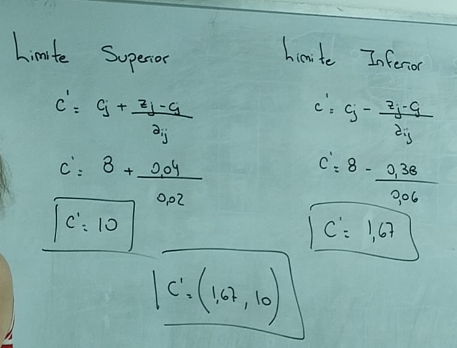 Limite Superior
C' = Cj + zj - Cj
aij
C' = 8 + 0,04
0,02
C' = 10
Limite Inferior
C' = Cj - zj - Cj
aij
C' = 8 - 0,38
0,06
C' = 1,67
C' = (1,67, 10)